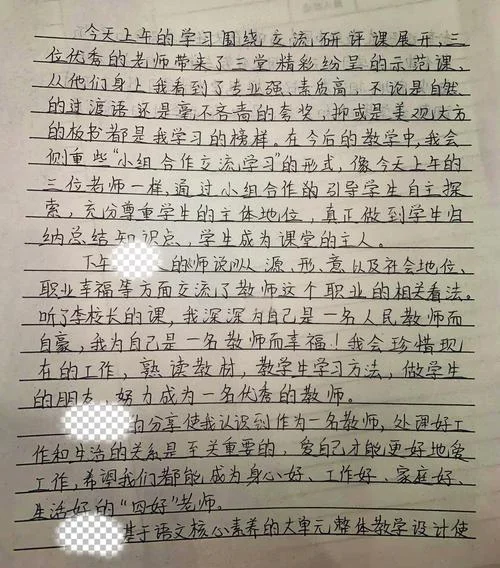 今天上午的学习围绕交流研评课展开,三
位优秀的老师带来了三堂精彩纷呈的示范课,
从他们身上我看到了专业强、素质高,不论是自然
的过渡语还是毫不吝啬的夸奖,抑或是美观大方
的板书都是我学习的榜样。在今后的教学中,我会
侧重些“小组合作交流学习”的形式,像今天上午的
三位老师一样,通过小组合作的引导学生自主探
索,充分尊重学生的主体地位,真正做到学生归
纳总结知识点,学生成为课堂的主人。
下午 人的《师说》从源、形、意以及社会地位、
职业幸福等方面交流了教师这个职业的相关看法。
听了李校长的课,我深深为自己是一名人民教师而
自豪,我为自己是一名教师而幸福!我会珍惜现
在的工作,熟读教材,教学生学习方法,做学生
的朋友,努力成为一名优秀的教师。
的分享使我认识到作为一名教师,处理好工
作和生活的关系是至关重要的,爱自己才能更好地爱
工作,希望我们都能成为身心好、工作好、家庭好、
生活好的“四好”老师。
基于语文核心素养的大单元整体教学设计使